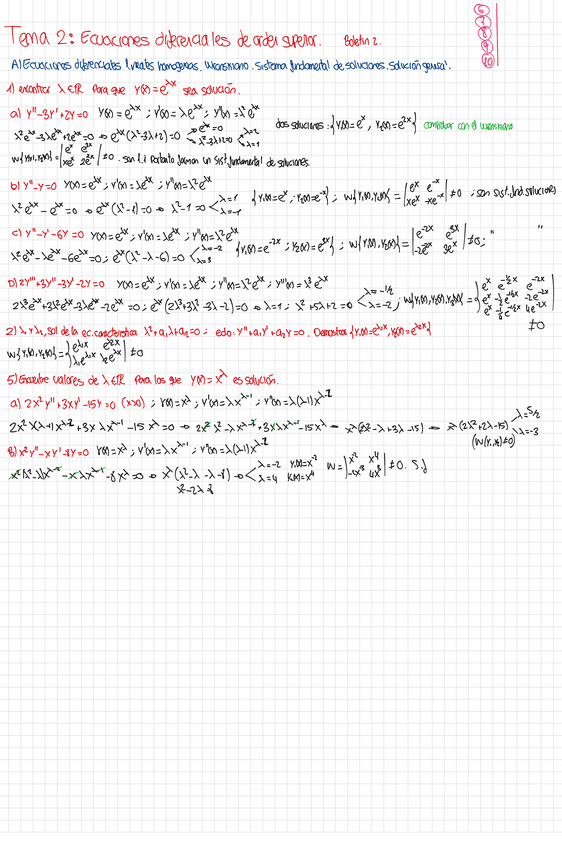 Tema 2: Ecuaciones diferenciales de orden superior. Boletín 2.
6
7
8
9
10
A) Ecuaciones diferenciales lineales homogéneas. Wronskiano. Sistema fundamental de soluciones. Solución general.
1) encontrar λ∈ℝ para que y(x)=e^λx sea solución.
a) y''-3y'+2y=0 y(x)=e^λx ; y'(x)=λe^λx ; y''(x)=λ²e^λx
λ²e^λx-3λe^λx+2e^λx=0 → e^λx(λ²-3λ+2)=0 → e^λx=0 → λ²-3λ+2=0 λ=2 λ=1 dos soluciones: {y₁(x)=e^x, y₂(x)=e^2x} comprobar con el wronskiano
≠0 . son l.i. Por tanto forman un sist. fundamental de soluciones.
b) y''-y=0 y(x)=e^λx ; y'(x)=λe^λx ; y''(x)=λ²e^λx
λ²e^λx-e^λx=0 → e^λx(λ²-1)=0 → λ²-1=0 λ=1 λ=-1 {y₁(x)=e^x, y₂(x)=e^-x} ; ≠0 ; son sist. fund. soluciones
c) y''-y'-6y=0 y(x)=e^λx ; y'(x)=λe^λx ; y''(x)=λ²e^λx
λ²e^λx-λe^λx-6e^λx=0 ; e^λx(λ²-λ-6)=0 λ=-2 λ=3 {y₁(x)=e^-2x, y₂(x)=e^3x} ; W{y₁(x),y₂(x)}= |e^-2x e^3x| |-2e^-2x 3e^3x| ≠0 ; " "
D) 2y'''+3y''-3y'-2y=0 y(x)=e^λx ; y'(x)=λe^λx ; y''(x)=λ²e^λx ; y'''(x)=λ³e^λx
2λ³e^λx+3λ²e^λx-3λe^λx-2e^λx=0 ; e^λx(2λ³+3λ²-3λ-2)=0 → λ=1 ; λ²+5λ+2=0 λ=-1/2 λ=-2 ; ≠0
2) λ₁ y λ₂ sol de la ec. característica λ²+a₁λ+a₂=0 ; edo: y''+a₁y'+a₂y=0. Demostrar {y₁(x)=e^λ₁x, y₂(x)=e^λ₂x}
≠0
5) Encuentre valores de λ∈ℝ para los que y(x)=x^λ es solución.
a) 2x²y''+3xy'-15y=0 (x>0) ; y(x)=x^λ ; y'(x)=λx^λ-1 ; y''(x)=λ(λ-1)x^λ-2
→ x^λ(2λ²-λ+3λ-15) → x^λ(2λ²+2λ-15) λ=5/2 λ=-3
B) x²y''-xy'-8y=0 y(x)=x^λ ; y'(x)=λx^λ-1 ; y''(x)=λ(λ-1)x^λ-2
→ x^λ(λ²-λ-λ-8) → λ=-2 y(x)=x^-2 λ=4 y(x)=x^4 ≠0. S.f
λ²-2λ-8